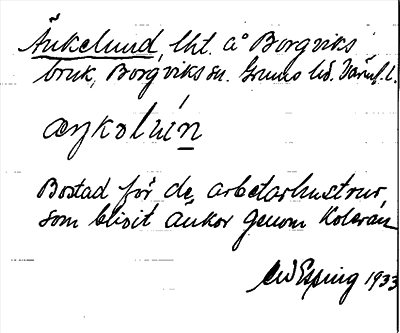 Änkelund, lht. å Borgviks
bruk, Borgviks sn. Grums hd. Värml. l.
æŋkəlún
Bostad för de arbetarhustrur,
som blivit änkor genom koleran
E W Esping 1933